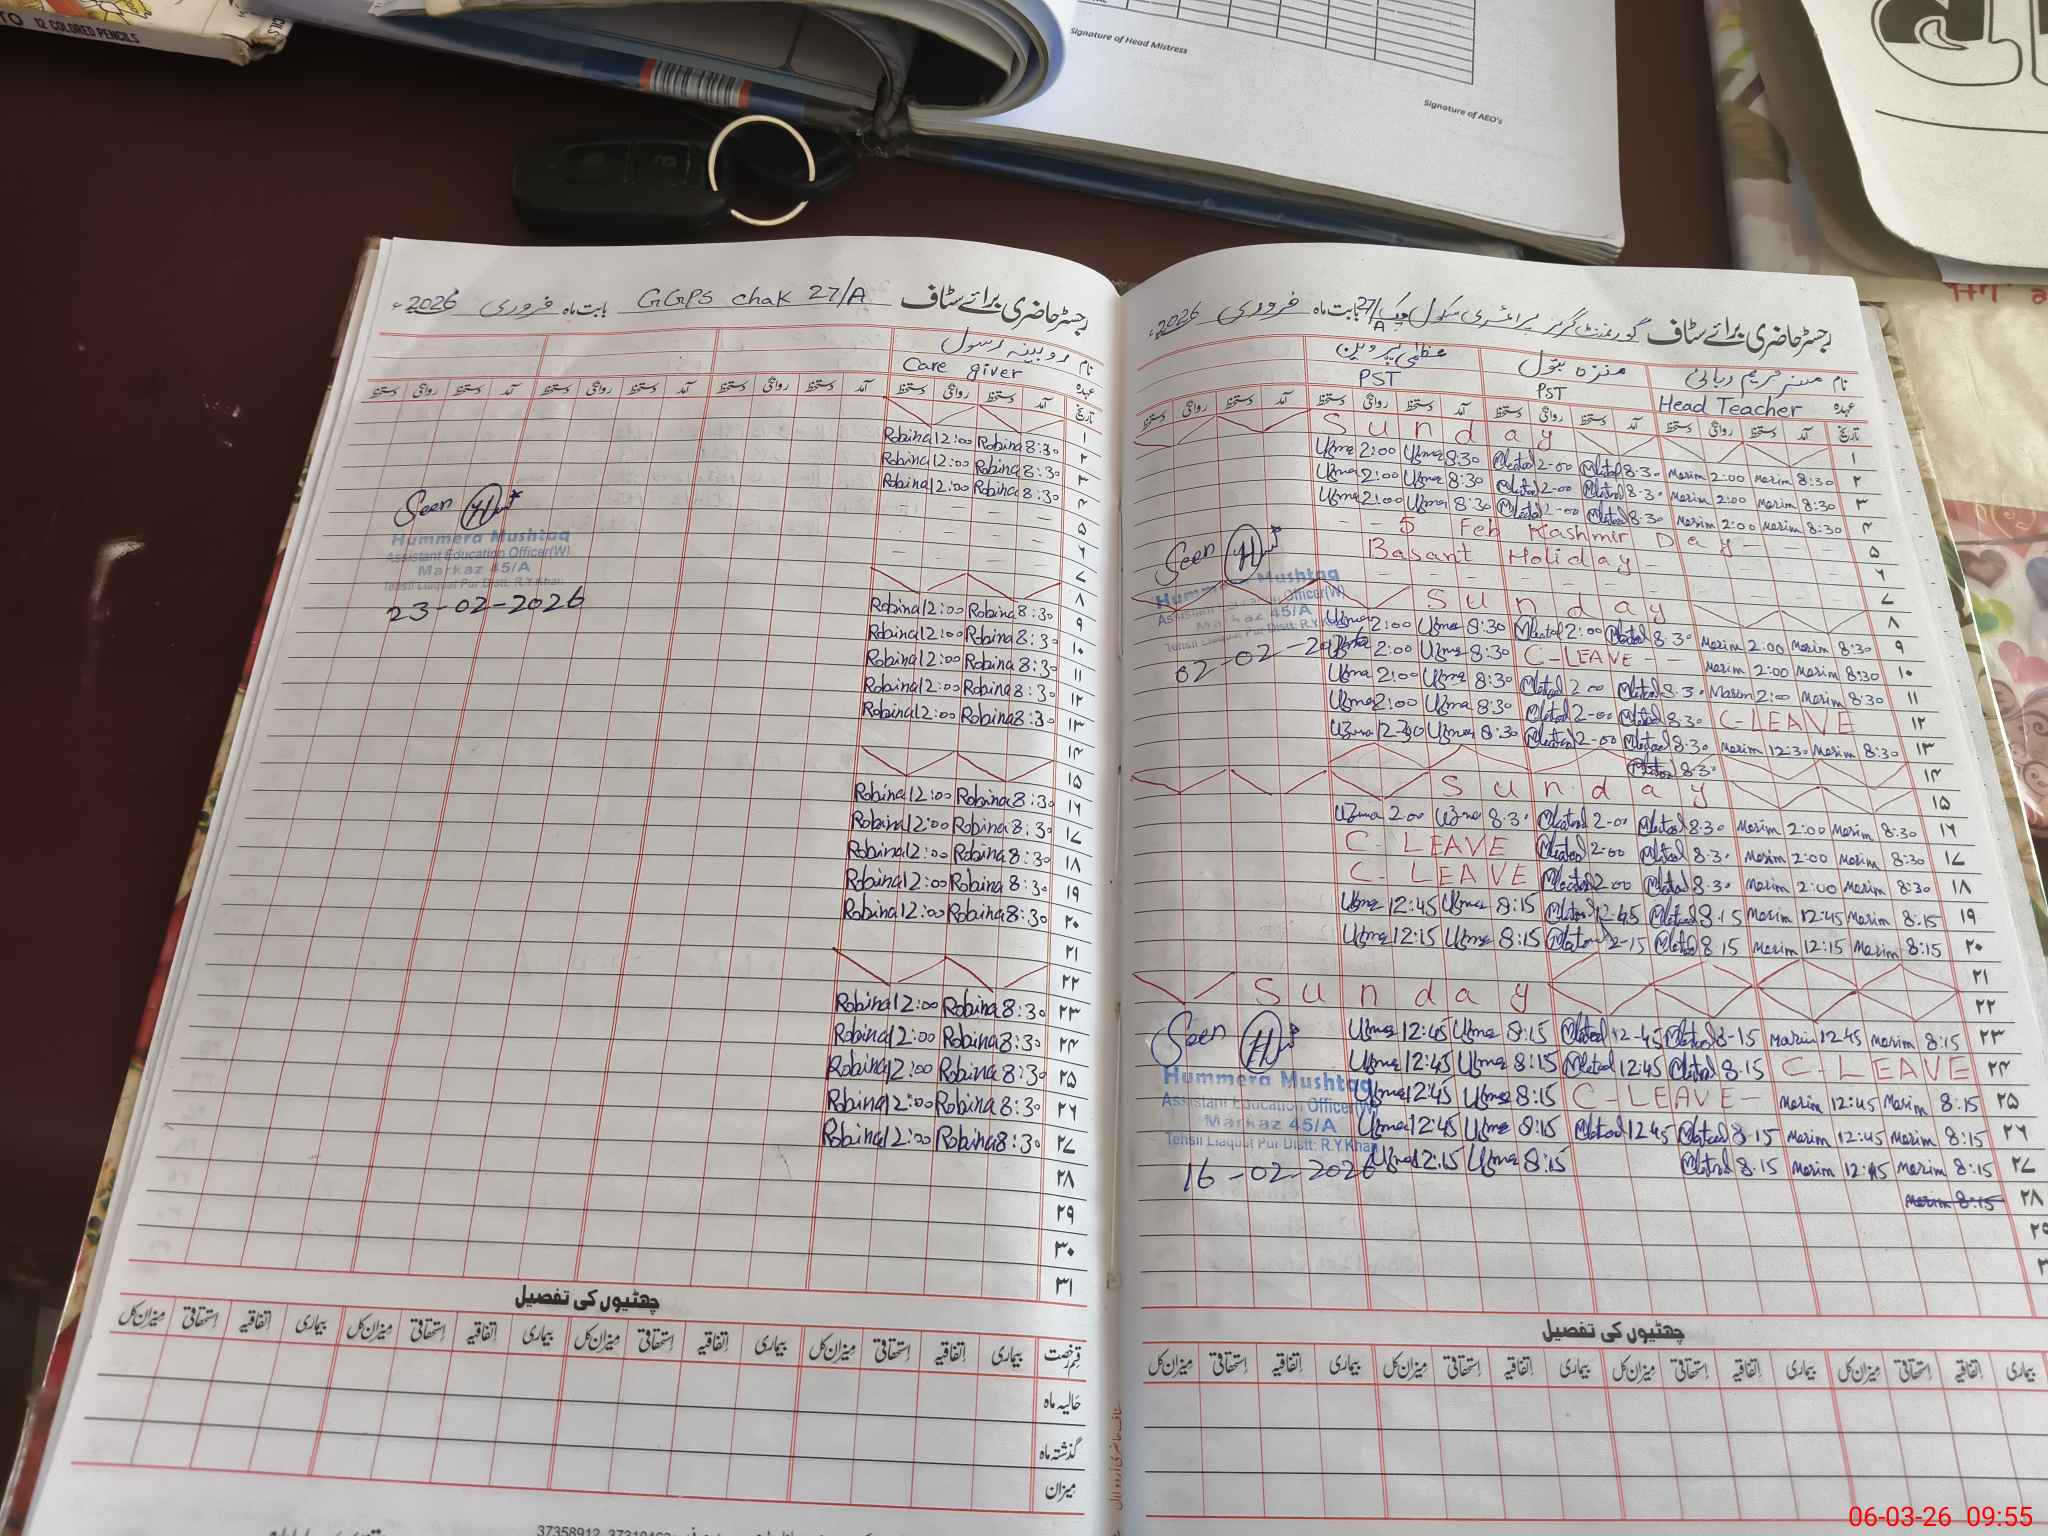 12 COLORED PENCILS
Signature of Head Mistress
Signature of AEO's
رجسٹر حاضری برائے سٹاف GGPS chak 27/A بابت ماہ فروری 2026ء
نام روبینہ رسول
عہدہ Care giver
تاریخ آمد دستخط روانگی دستخط آمد دستخط روانگی دستخط آمد دستخط روانگی دستخط آمد دستخط روانگی دستخط
۱
۲ Robina 8:30 Robina 12:00
۳ Robina 8:30 Robina 12:00
۴ Robina 8:30 Robina 12:00
۵ – – – –
۶ – – – –
۷ – – – –
۸
۹ Robina 8:30 Robina 12:00
۱۰ Robina 8:30 Robina 12:00
۱۱ Robina 8:30 Robina 12:00
۱۲ Robina 8:30 Robina 12:00
۱۳ Robina 8:30 Robina 12:00
۱۴
۱۵
۱۶ Robina 8:30 Robina 12:00
۱۷ Robina 8:30 Robina 12:00
۱۸ Robina 8:30 Robina 12:00
۱۹ Robina 8:30 Robina 12:00
۲۰ Robina 8:30 Robina 12:00
۲۱
۲۲
۲۳ Robina 8:30 Robina 12:00
۲۴ Robina 8:30 Robina 12:00
۲۵ Robina 8:30 Robina 12:00
۲۶ Robina 8:30 Robina 12:00
۲۷ Robina 8:30 Robina 12:00
۲۸
۲۹
۳۰
۳۱
Seen
Hummera Mushtaq
Assistant Education Officer(W)
Markaz 45/A
Tehsil Liaquat Pur Distt. R.Y.Khan
23-02-2026
چھٹیوں کی تفصیل
قسم رخصت بیماری اتفاقیہ استحقاقی میزان کل بیماری اتفاقیہ استحقاقی میزان کل بیماری اتفاقیہ استحقاقی میزان کل بیماری اتفاقیہ استحقاقی میزان کل
حالیہ ماہ
گذشتہ ماہ
میزان
رجسٹر حاضری برائے سٹاف گورنمنٹ گرلز پرائمری سکول چک 27/A بابت ماہ فروری 2026ء
نام مسز مریم ربانی منزہ بتول عظمیٰ پروین
عہدہ Head Teacher PST PST
تاریخ آمد دستخط روانگی دستخط آمد دستخط روانگی دستخط آمد دستخط روانگی دستخط آمد دستخط روانگی دستخط
۱ Sunday
۲ 8:30 Marim 2:00 Marim 8:30 2:00 8:30 Uzma 2:00 Uzma
۳ 8:30 Marim 2:00 Marim 8:30 2:00 8:30 Uzma 2:00 Uzma
۴ 8:30 Marim 2:00 Marim 8:30 2:00 8:30 Uzma 2:00 Uzma
۵ – – 5 Feb Kashmir Day – – –
۶ Basant Holiday – – – –
۷ – – – –
۸ Sunday
۹ 8:30 Marim 2:00 Marim 8:30 2:00 8:30 Uzma 2:00 Uzma
۱۰ 8:30 Marim 2:00 Marim C-LEAVE – – 8:30 Uzma 2:00 Uzma
۱۱ 8:30 Marim 2:00 Marim 8:30 2:00 8:30 Uzma 2:00 Uzma
۱۲ C-LEAVE 8:30 2:00 8:30 Uzma 2:00 Uzma
۱۳ 8:30 Marim 12:30 Marim 8:30 2:00 8:30 Uzma Uzma
۱۴ 8:30
۱۵ Sunday
۱۶ 8:30 Marim 2:00 Marim 8:30 2:00 8:30 Uzma 2:00 Uzma
۱۷ 8:30 Marim 2:00 Marim 8:30 2:00 C-LEAVE
۱۸ 8:30 Marim 2:00 Marim 8:30 2:00 C-LEAVE
۱۹ 8:15 Marim 12:45 Marim 8:15 12:45 8:15 Uzma 12:45 Uzma
۲۰ 8:15 Marim 12:15 Marim 8:15 8:15 Uzma 12:15 Uzma
۲۱
۲۲ Sunday
۲۳ 8:15 Marim 12:45 Marim 8:15 12-45 8:15 Uzma 12:45 Uzma
۲۴ C-LEAVE 8:15 12:45 8:15 Uzma 12:45 Uzma
۲۵ 8:15 Marim 12:45 Marim C-LEAVE – 8:15 Uzma 12:45 Uzma
۲۶ 8:15 Marim 12:45 Marim 8:15 12:45 8:15 Uzma 12:45 Uzma
۲۷ 8:15 Marim 12:15 Marim 8:15 8:15 Uzma 12:15 Uzma
۲۸ Marim 8:15
۲۹
Seen
Hummera Mushtaq
Assistant Education Officer(W)
Markaz 45/A
Tehsil Liaquat Pur Distt. R.Y.Khan
02-02-2026
Seen
Hummera Mushtaq
Assistant Education Officer(W)
Markaz 45/A
Tehsil Liaquat Pur Distt. R.Y.Khan
16-02-2026
چھٹیوں کی تفصیل
بیماری اتفاقیہ استحقاقی میزان کل بیماری اتفاقیہ استحقاقی میزان کل بیماری اتفاقیہ استحقاقی میزان کل بیماری اتفاقیہ استحقاقی میزان کل
06-03-26 09:55